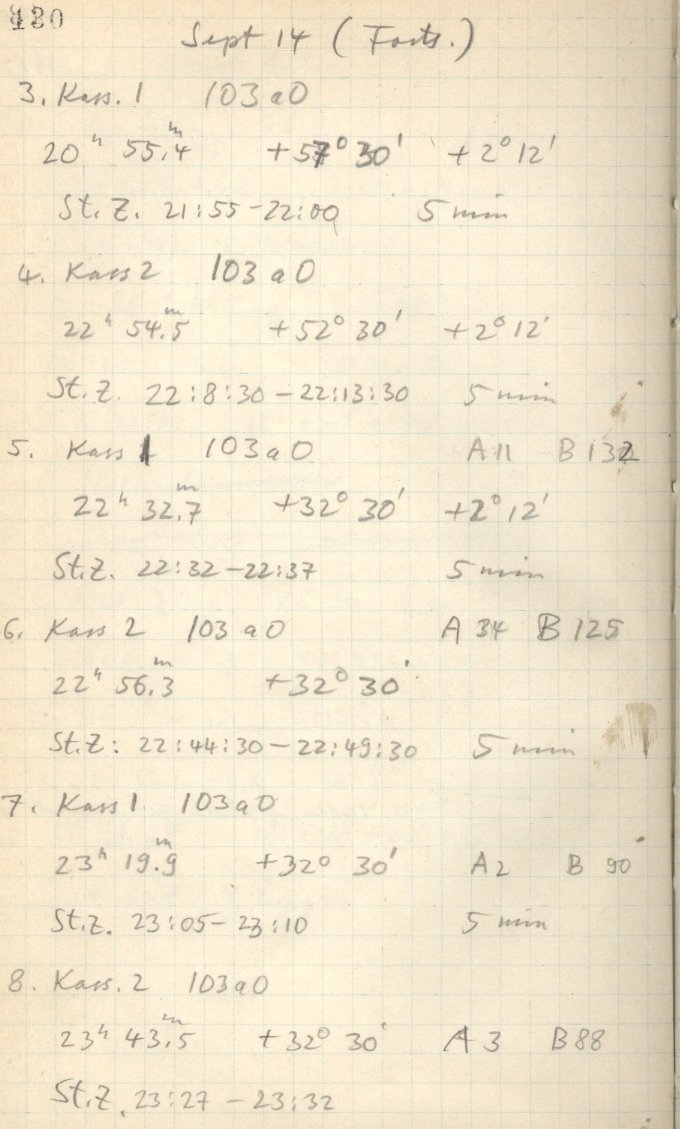 130
Sept 14 (Forts.)
3. Kass. 1 103aO
20ʰ 55.4ᵐ +57° 30' +2° 12'
St. Z. 21:55-22:00 5 min
4. Kass 2 103aO
22ʰ 54.5ᵐ +52° 30' +2° 12'
St. Z. 22:8:30-22:13:30 5 min
5. Kass 1 103aO A11 B132
22ʰ 32.7ᵐ +32° 30' +2° 12'
St. Z. 22:32-22:37 5 min
6. Kass 2 103aO A 34 B 125
22ʰ 56.3ᵐ +32° 30'
St. Z: 22:44:30-22:49:30 5 min
7. Kass 1 103aO
23ʰ 19.9ᵐ +32° 30' A2 B 90
St. Z. 23:05-23:10 5 min
8. Kass. 2 103aO
23ʰ 43.5ᵐ +32° 30' A 3 B88
St. Z. 23:27-23:32